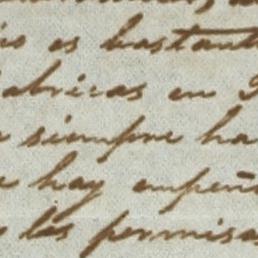 es bastant
abricas en
siempre ha
hay empeñ
las permisas